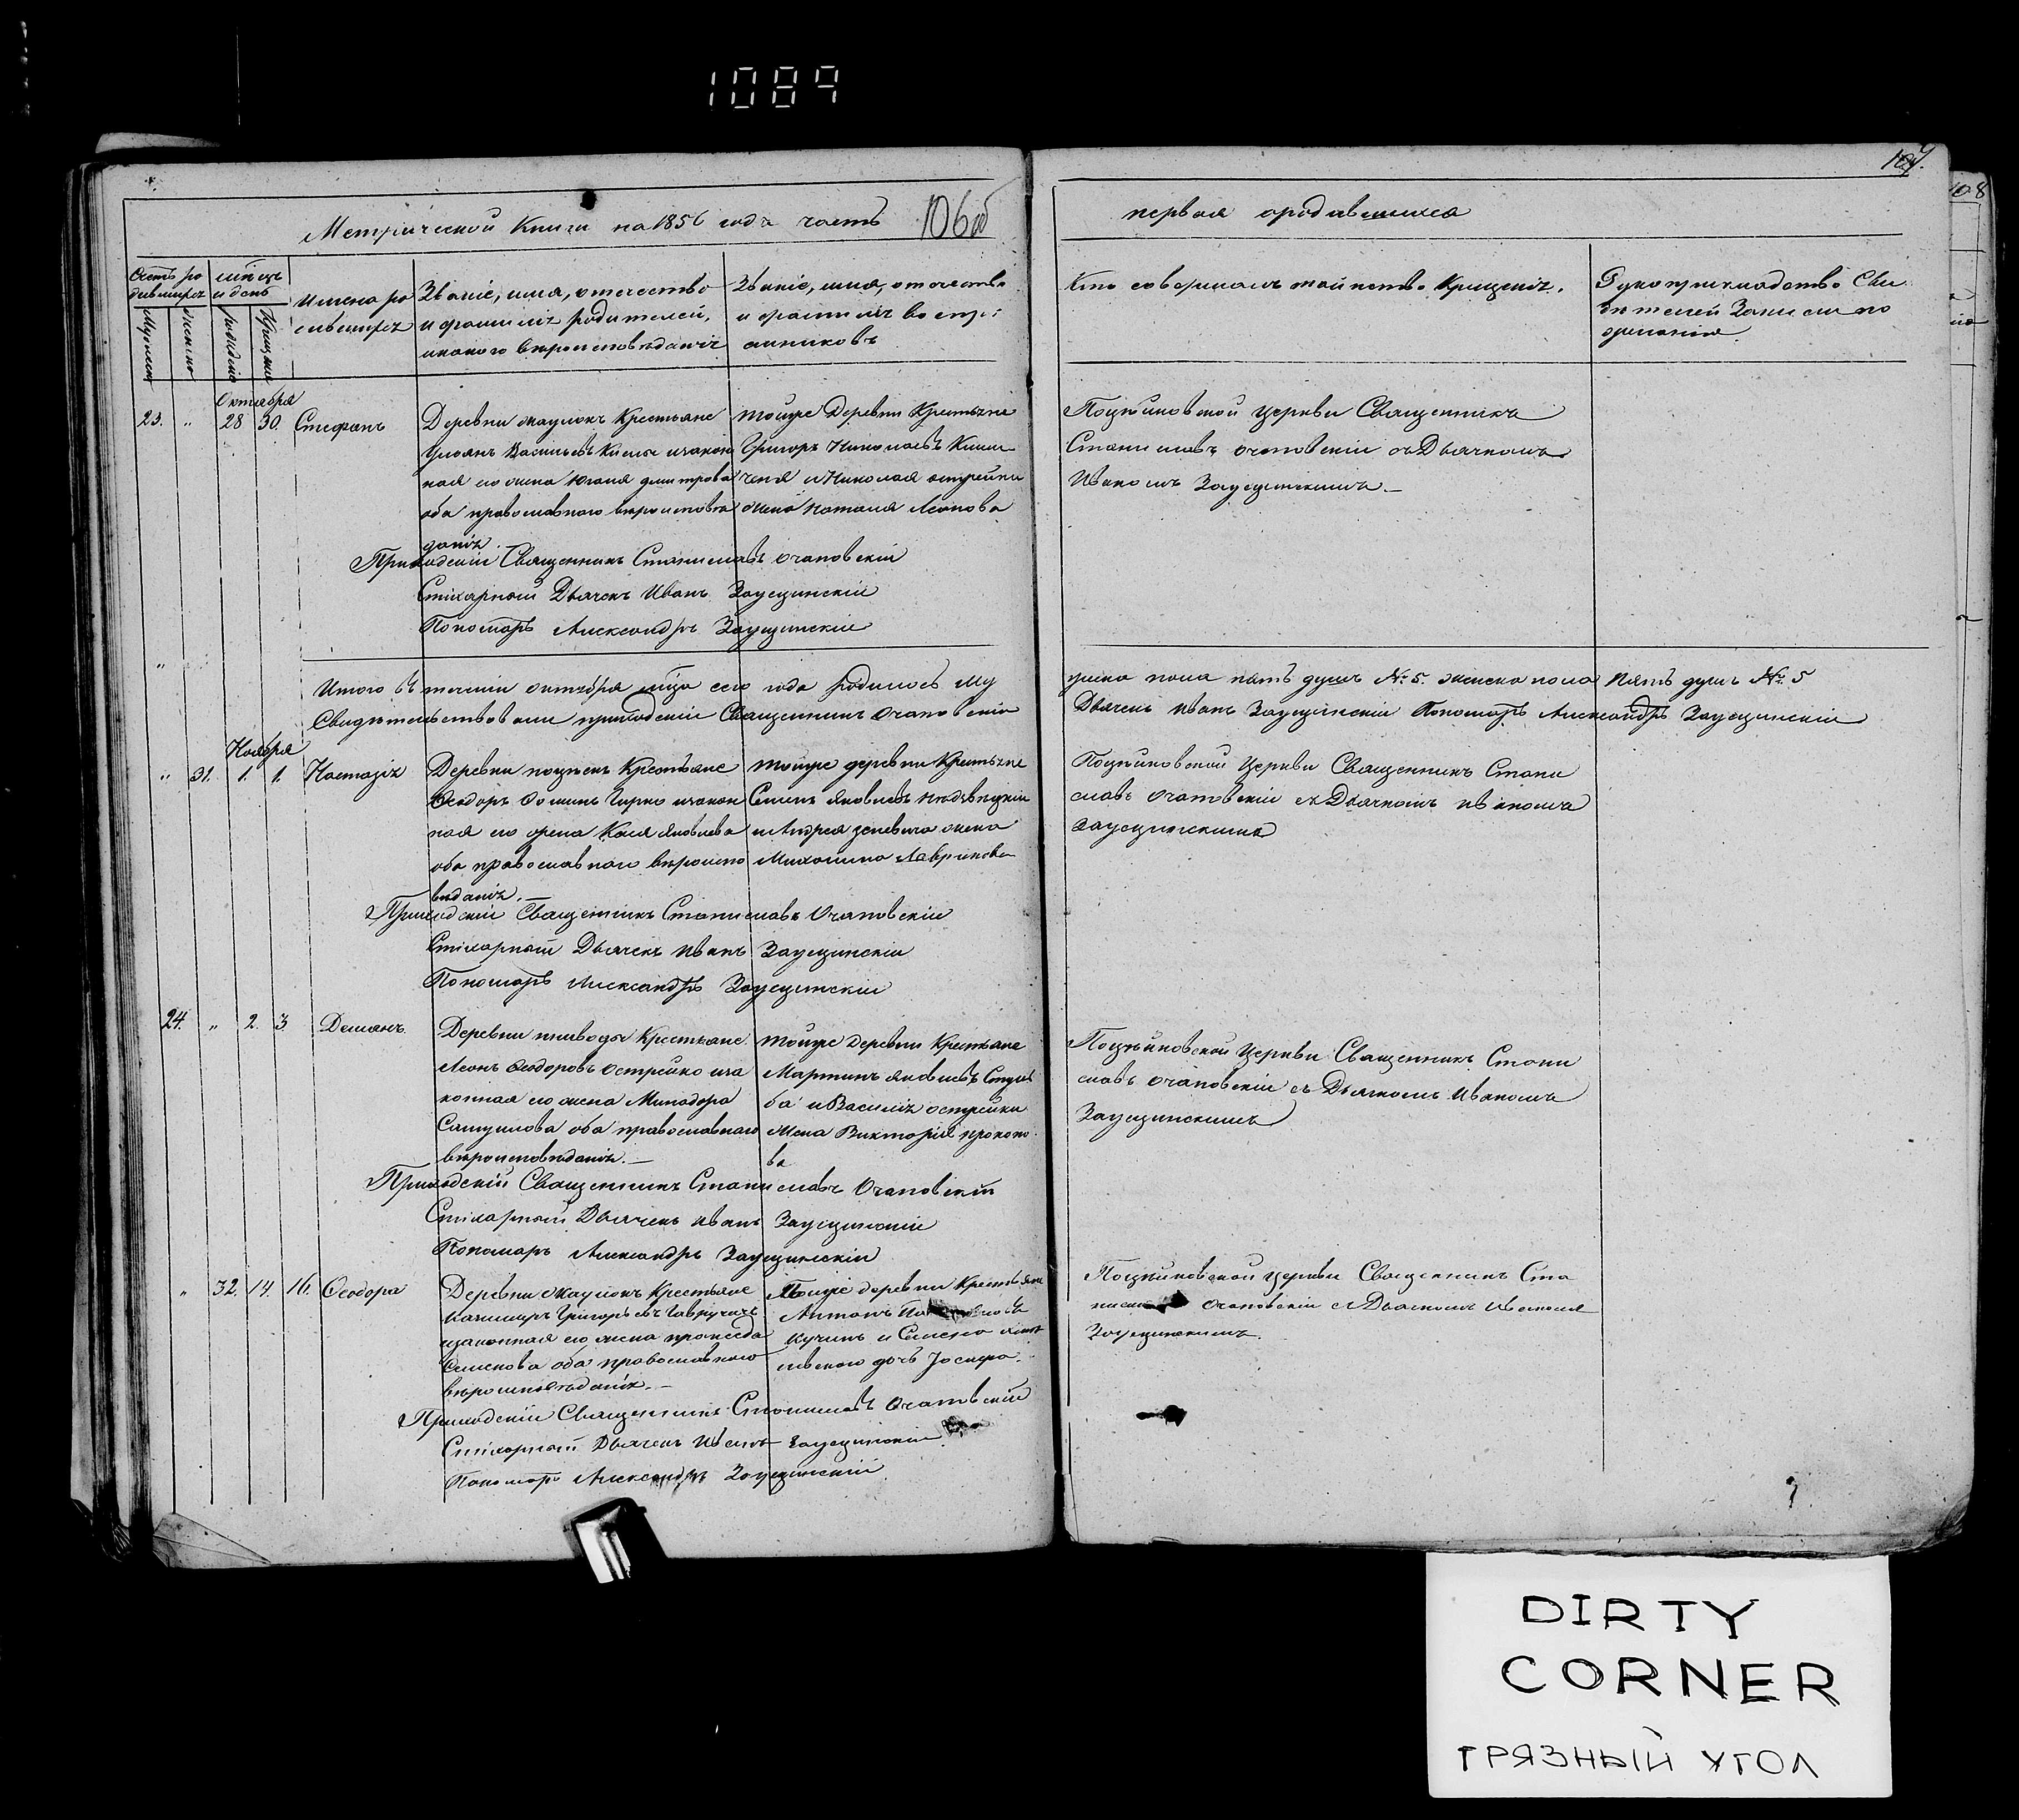 1089
107.
108
Метрической Книги на 1856 года часть 106об
первая о родившихся
Счетъ родившихся
мѣсяцъ и день
Мужеска
Женска
рожденія
Крещенія
Имена родившихся
Званіе, имя, отечество
и фамилія родителей,
и какого вѣроисповѣданія
Званіе, имя, отечество
и фамилія воспріемниковъ
Кто совершалъ таинство Крещенія.
Рукоприкладство Свидѣтелей Записи по
желанію
Октября
23. " 28 30. Стефанъ
Деревни Крестьяне
Васильевъ изакон
ная его жена дмитрова
оба православного вѣроисповѣ
данія.
тойже Деревни Крестьяне
Григоръ Николаевъ
и Николая острейки
жена Наталя Леонова
Поцѣйковской церкви Священникъ
Станиславъ Очаповскій съ Дьячкомъ
Иваномъ Заусцинскимъ.
Приходскій Священникъ Станиславъ Очаповскій
Стихарный Дьячекъ Иванъ Заусцинскій
Пономаръ Александръ Заусцинскій
Итого въ теченіи октября мѣца сего года родилось му
жеска пола пять душъ № 5. женска пола пять душъ № 5
Свидѣтельствовали приходскій Священникъ Очаповскій
Дьячекъ Иванъ Заусцинскій Пономаръ Александръ Заусцинскій
Ноября
" 31. 1. 1. Настазія
Деревни Крестьяне
Ѳеодоръ изакон
ная его жена Яковлева
оба православнаго вѣроиспо
вѣданія.
тойже деревни Крестьяне
Семенъ Яковлевъ
и Андрея жена
Михалина Лавринова
Поцѣйковской Церкви Священникъ Стани
славъ Очаповскій съ Дьячкомъ Иваномъ
Заусцинскимъ
Приходскій Священникъ Станиславъ Очаповскій
Стихарный Дьячекъ Иванъ Заусцинскій
Пономаръ Александръ Заусцинскій
24. " 2. 3 Демянъ
Деревни Крестьяне
Леонъ Ѳеодоровъ Острейко иза
конная его жена Минадора
Самуилова оба православнаго
вѣроисповѣданія.
тойже Деревни Крестьяне
Мартинъ Яковлевъ
и Василія острейки
жена Викторія прокопо
ва
Поцѣйковской Церкви Священникъ Стани
славъ Очаповскій съ Дьячкомъ Иваномъ
Заусцинскимъ
Приходскій Священникъ Станиславъ Очаповскій
Стихарный Дьячекъ Иванъ Заусцинскій
Пономаръ Александръ Заусцинскій
" 32. 14. 16. Ѳеодора
Деревни Крестьяне
Казимиръ Григорьевъ
изаконная его жена
Семенова оба православного
вѣроисповѣданія.
Тойже деревни Крестьяне
Антонъ
и Семена
дочь
Поцѣйковской церкви Священникъ Ста
Очаповскій съ Дьячкомъ Иваномъ
Заусцинскимъ.
Приходскій Священникъ Станиславъ Очаповскій
Стихарный Дьячекъ Иванъ Заусцинскій
Пономаръ Александръ Заусцинскій
DIRTY
CORNER
ГРЯЗНЫЙ УГОЛ